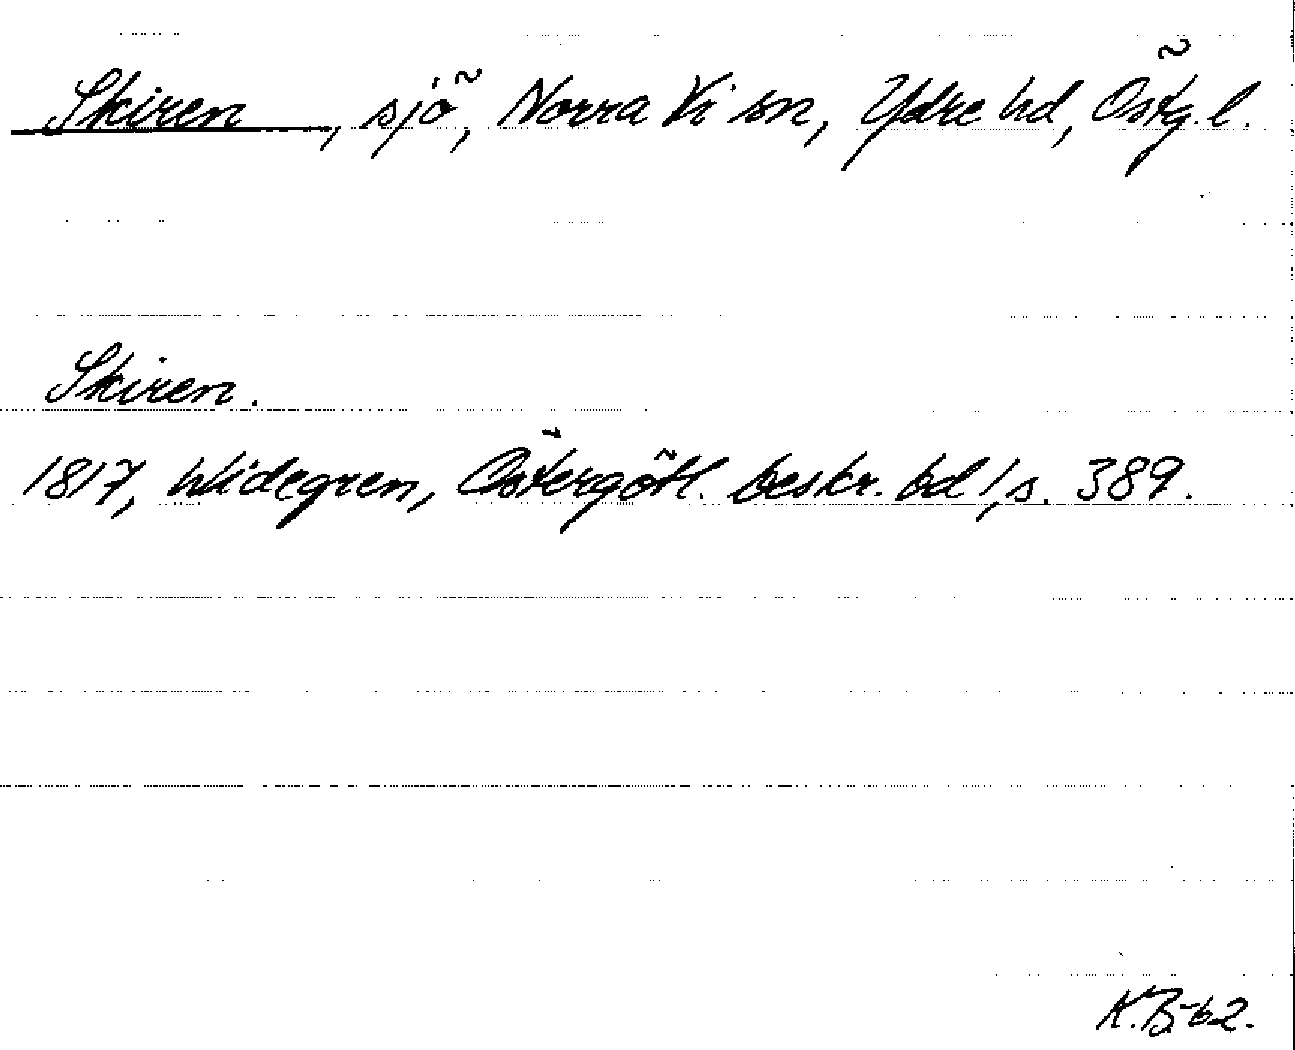 Skiren, sjö, Norra Vi sn, Ydre hd, Östg. l.
Skiren.
1817, Widegren, Östergötl. beskr. bd 1, s. 389.
K.B-62.